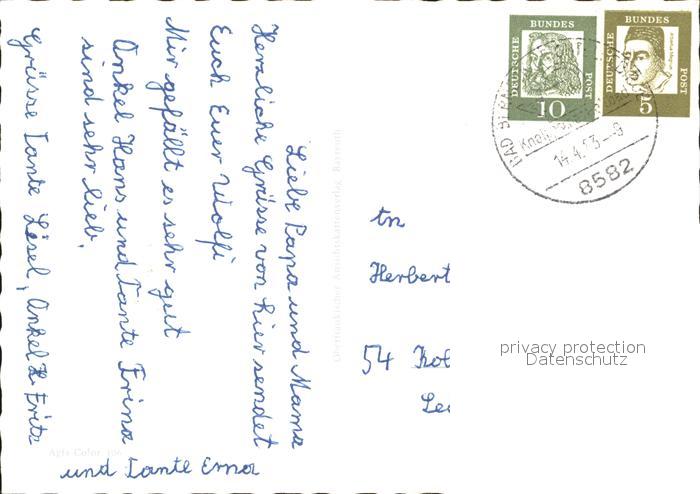 Liebe Papa und Mama
Herzliche Grüsse von hier sendet
Euch Euer Wolfi
Mir gefällt es sehr gut
Onkel Hans und Tante Irina
sind sehr lieb.
Grüsse Tante Lisel, Onkel Fritz
und Tante Erna
Oberfränkischer Ansichtskartenverlag Bayreuth
Agfa Color 106
DEUTSCHE BUNDES POST
10
DEUTSCHE BUNDES POST
5
BAD
14.4.63-9
8582
Herbert
54
privacy protection
Datenschutz